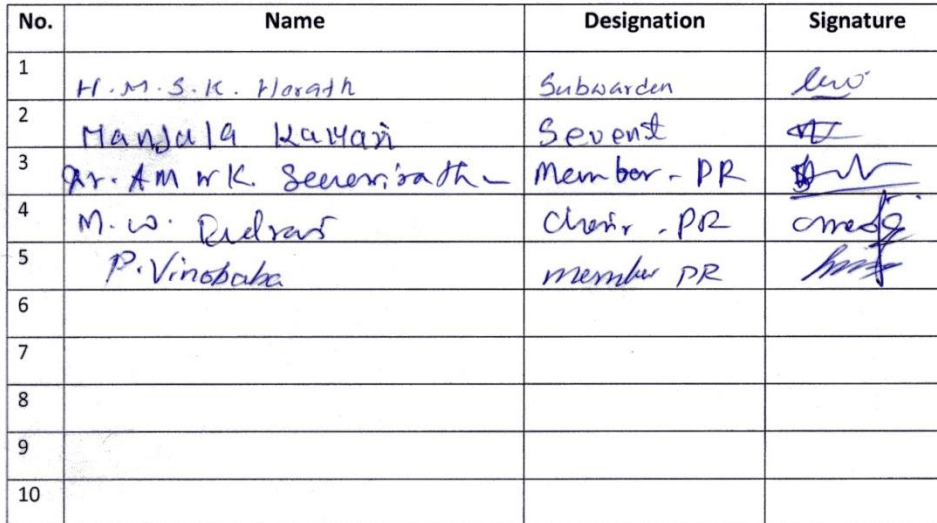 No. Name Designation Signature
1 H.M.S.K. Herath Subwarden
2 Manjula Kumari Sevent
3 Dr. AM W K. Senevirathn Member - PR
4 M. W. Chair - PR
5 P. Vinobaba member PR
6
7
8
9
10